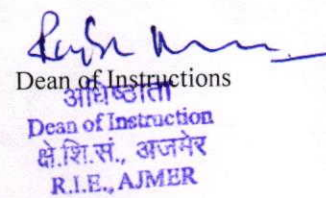 Dean of Instructions
अधिष्ठाता
Dean of Instruction
क्षे.शि.सं., अजमेर
R.I.E., AJMER